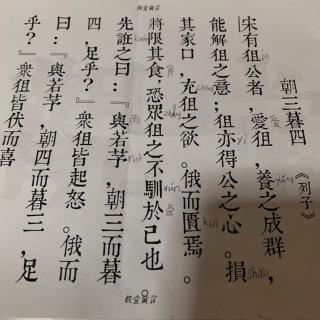 殷堂寓言
朝三暮四 《列子》
宋有狙公者,愛狙,養之成群,
能解狙之意;狙亦得公之心。損
其家口,充狙之欲。俄而匱焉。
將限其食,恐眾狙之不馴於己也。
先誑之曰:『與若芧,朝三而暮
四,足乎?』眾狙皆起怒。俄而
曰:『與若芧,朝四而暮三,足
乎?』眾狙皆伏而喜
yǎng
sǔn
chōng
kuì
xùn
kuáng